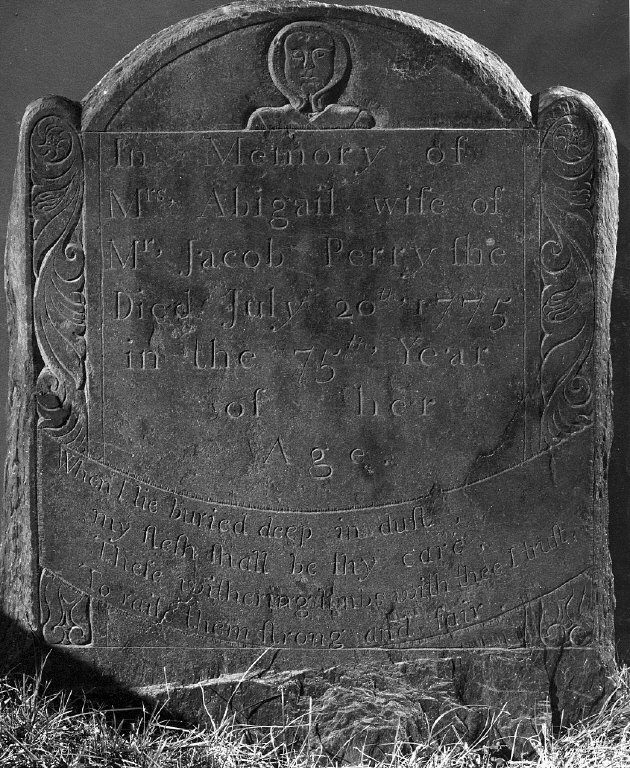 In Memory of
Mrs. Abigail wife of
Mr. Jacob Perry ſhe
Died July 20th 1775
in the 75th, Year
of her
Age.
When I lie buried deep in duſt,
my fleſh ſhall be thy care.
Theſe withering limbs with thee I truſt,
To raiſe them ſtrong and fair.